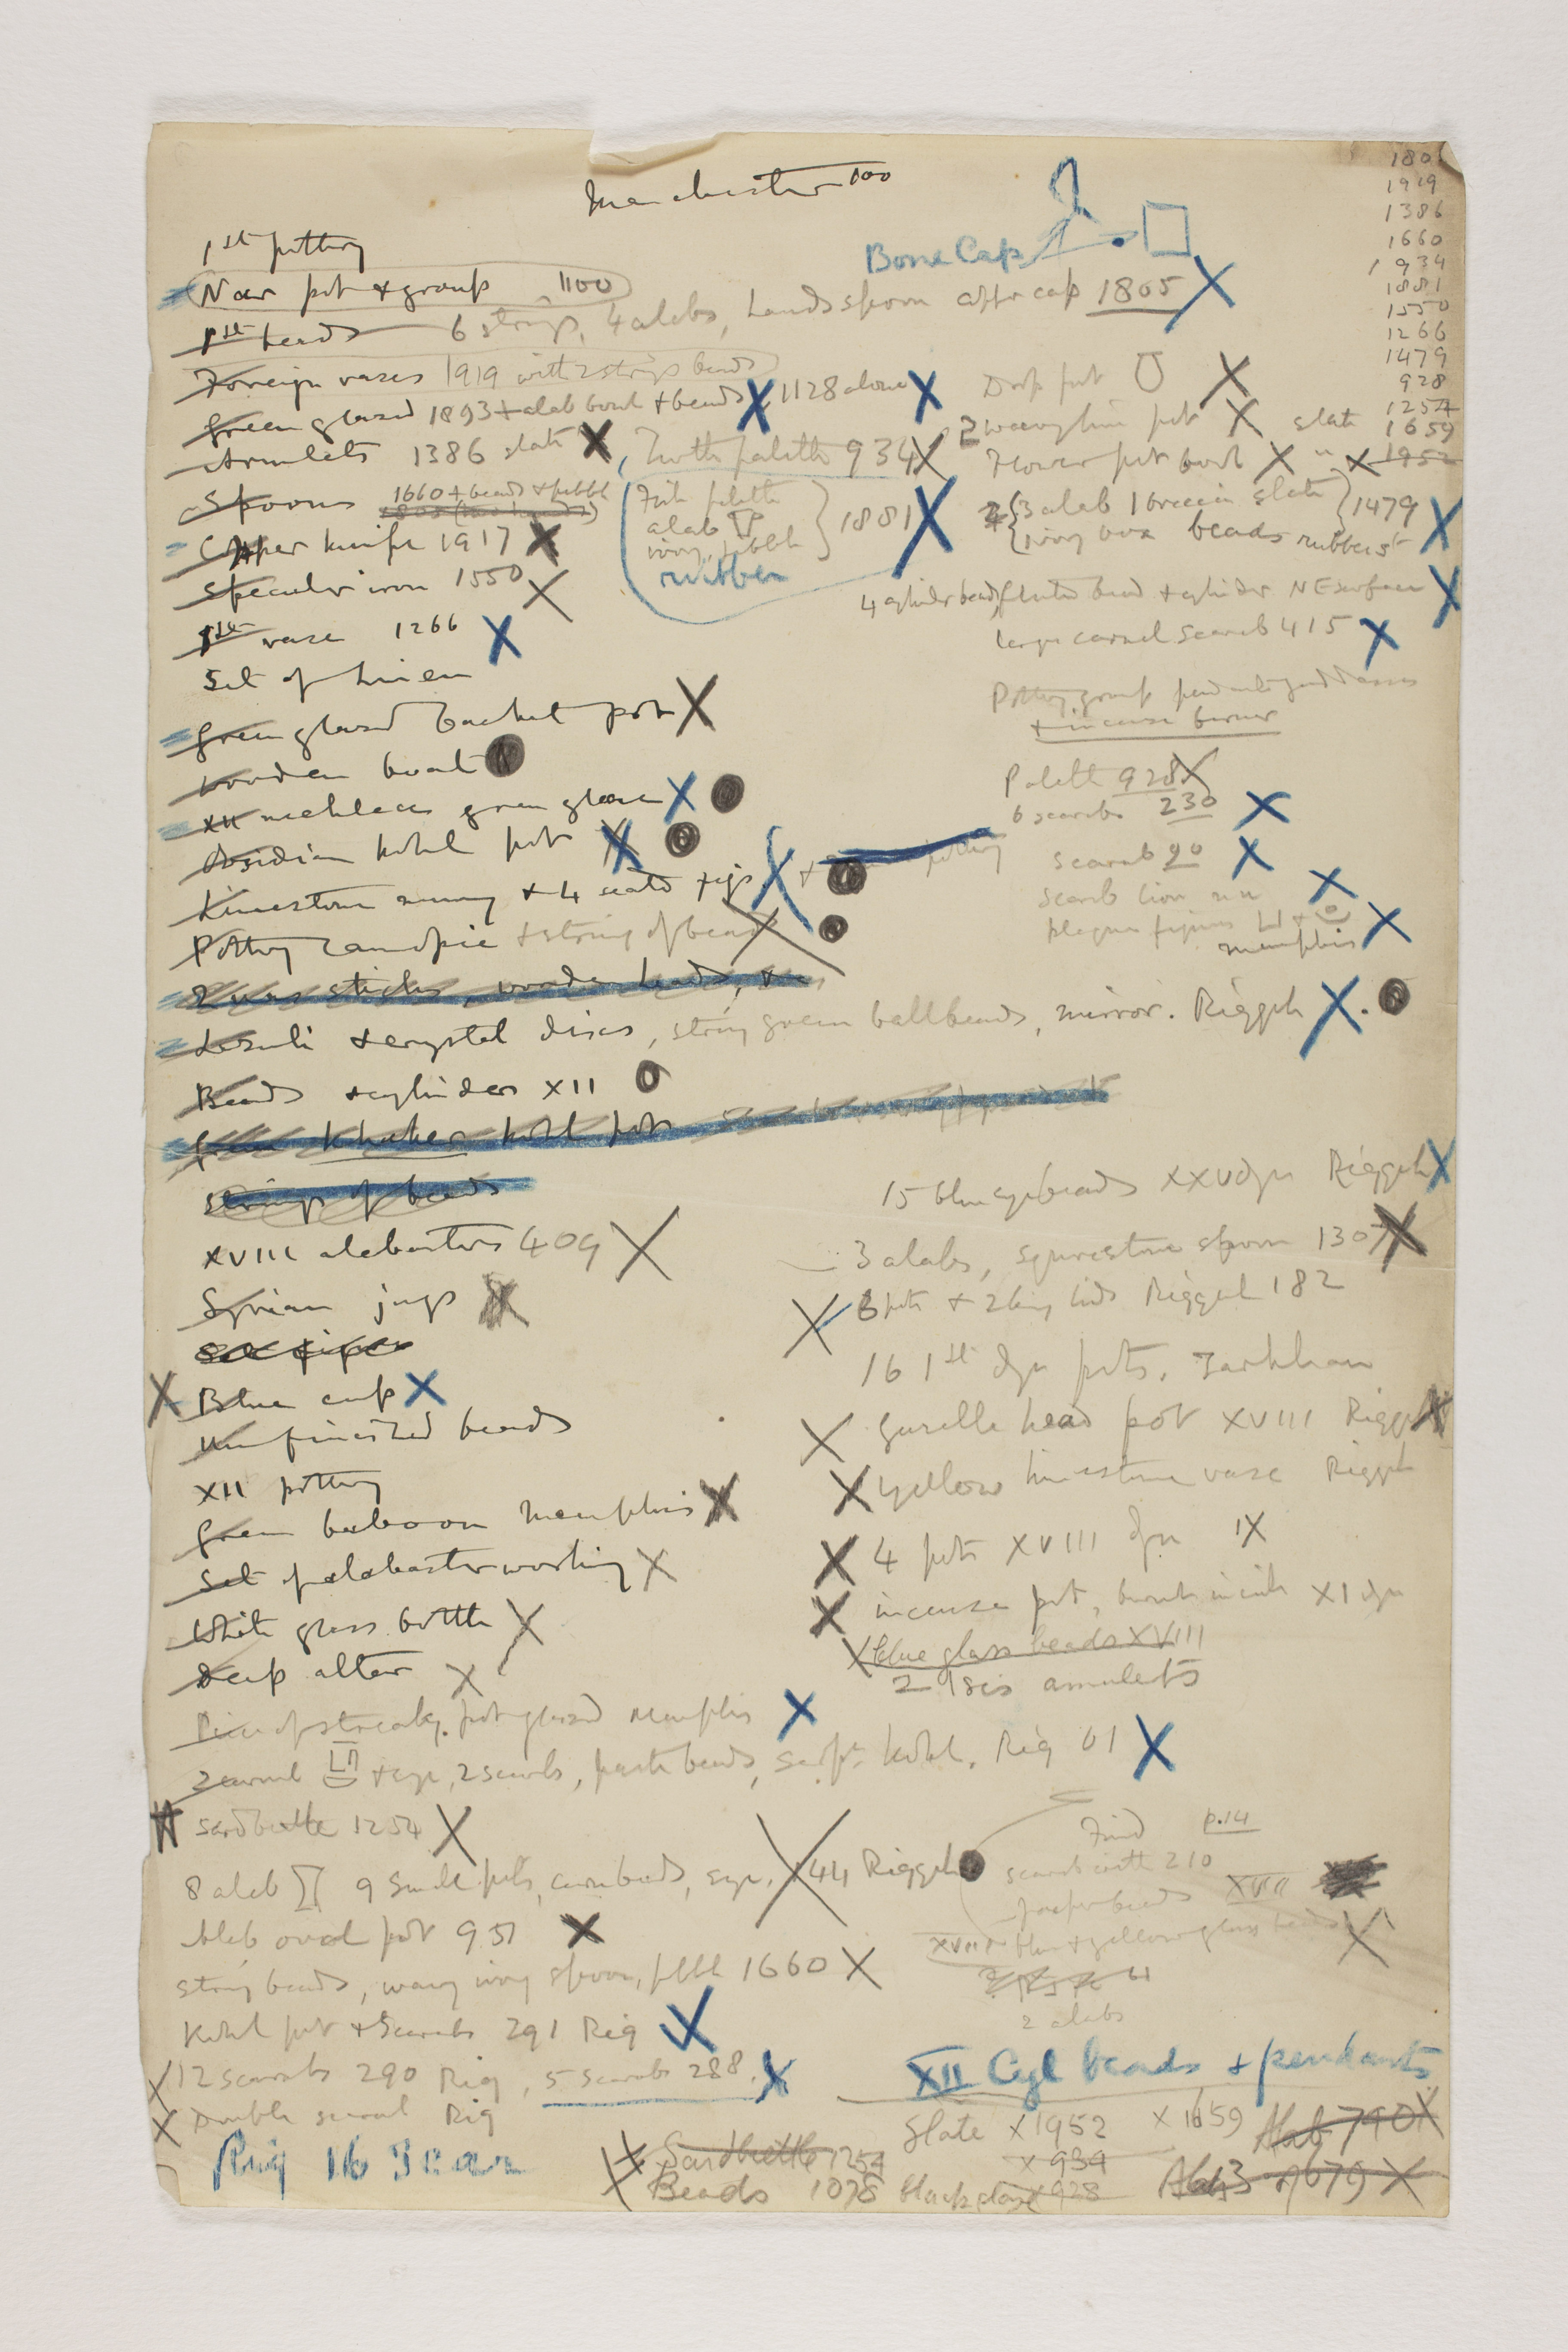 Manchester 100
1801
1919
1386
1660
1934
1881
1550
1266
1479
928
1254
1659
1952
1st pottery
Nar pot + group 1100
Bone Cap
1st beads 6 strings, 4 alabs, hands spoon cap 1805 X
Foreign vases 1919 with 2 strings beads
Green glazed 1893 + alab bowl + beads X 1128 alone X
Drop pot X
Armlets 1386 slate X, Turtle palette 934 X
2 wavy line pot X slate
Flower pot bowl X " X 1952
Spoons 1660 + beads + pebble
1805 (two hands)
Fish palette
alab
ivory, pebble
rubber
1881 X
3 alab 1 breccia slate
ivory box beads rubber st
1479 X
Copper knife 1917 X
Specular iron 1550 X
4 cylinder beads, fluted bead + cylinder NE surface X
1st vase 1266 X
large carnel scarab 415 X
Set of linen
Pottery group goddesses
+ incense burner
Green glazed basket pot X
Wooden boat
Palette 928 X
XII necklace green glaze X
6 scarabs 230 X
Obsidian kohl pot X
Scarab 90 X
Limestone mummy + 4 seated figs X + pottery
Scarab lion X
plaque figures +
Memphis X
Pottery canopic + string of beads X
2 was sticks, wooden heads, +
Lazuli + crystal discs, string green ball beads, mirror. Riqqeh X.
Beads + cylinders XII
Green Khaker kohl pots
Strings of beads
15 blue eye beads XXV dyn Riqqeh X
XVIII alabasters 409 X
3 alabs, spoon 1307 X
Syrian jugs X
X 3 pots + 2 lids Riqqeh 182
16 1st dyn pots. Tarkhan
X Blue cup X
X Gazelle head pot XVIII Riqqeh X
Unfinished beads
X Yellow limestone vase Riqqeh
XII pottery
Green baboon Memphis X
X 4 pots XVIII dyn X
Set of alabaster working X
X incense pot, XI dyn
White glass bottle X
X blue glass beads XVIII
2 Isis amulets
Deep altar X
Piece of streaky pot glazed Memphis X
2 carnel + eye, 2 scarabs, paste beads, serpt kohl. Riq 61 X
Sard beetle 1254 X
Find p.14
scarab with 210
8 alab 9 small pots, carn beads, eye. X 44 Riqqeh
Jasper beads XVIII
Alab oval pot 951 X
XVIII blue + yellow glass beads X
String beads, wavy ivory spoon, pebble 1660 X
61
2 alabs
Kohl pot + Scarabs 291 Riq X
X 12 scarabs 290 Riq, 5 scarabs 288. X
XII Cyl beads + pendants
X Double scarab Riq
Slate X 1952 X 1659 Alab 790 X
Riq 16 Scar
X Sard beetle 1254
X 934
X Beads 1078
black X 928
Alab 3 of 679 X